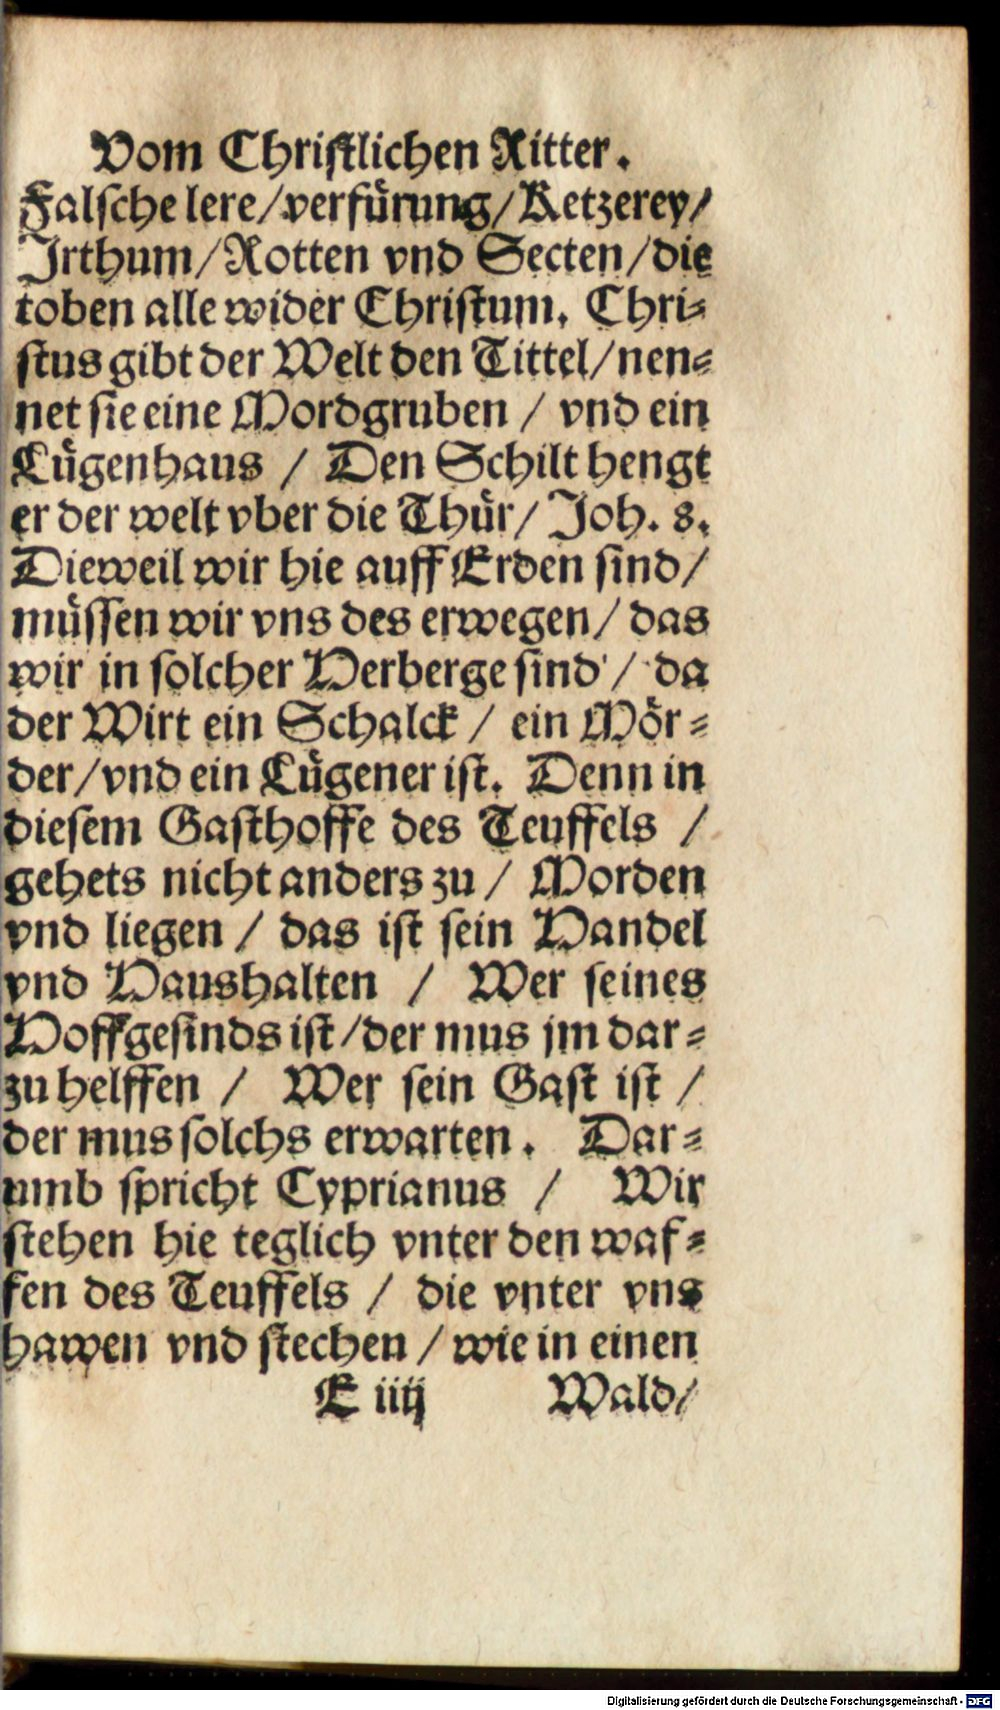 Vom Christlichen Ritter.
Falsche lere/verfürung/Ketzerey/
Irthum/Rotten vnd Secten/die
toben alle wider Christum. Chri⸗
stus gibt der Welt den Tittel/nen⸗
net sie eine Mordgruben / vnd ein
Lügenhaus / Den Schilt hengt
er der welt vber die Thür/ Joh. 8.
Dieweil wir hie auff Erden sind/
müssen wir vns des erwegen/ das
wir in solcher Herberge sind / da
der Wirt ein Schalck / ein Mör⸗
der/vnd ein Lügener ist. Denn in
diesem Gasthoffe des Teuffels /
gehets nicht anders zu / Morden
vnd liegen / das ist sein Handel
vnd Haushalten / Wer seines
Hoffgesinds ist/der mus jm dar⸗
zu helffen / Wer sein Gast ist /
der mus solchs erwarten. Dar⸗
umb spricht Cyprianus / Wir
stehen hie teglich vnter den waf⸗
fen des Teuffels / die vnter vns
hawen vnd stechen / wie in einen
E iiij Wald/
Digitalisierung gefördert durch die Deutsche Forschungsgemeinschaft - DFG